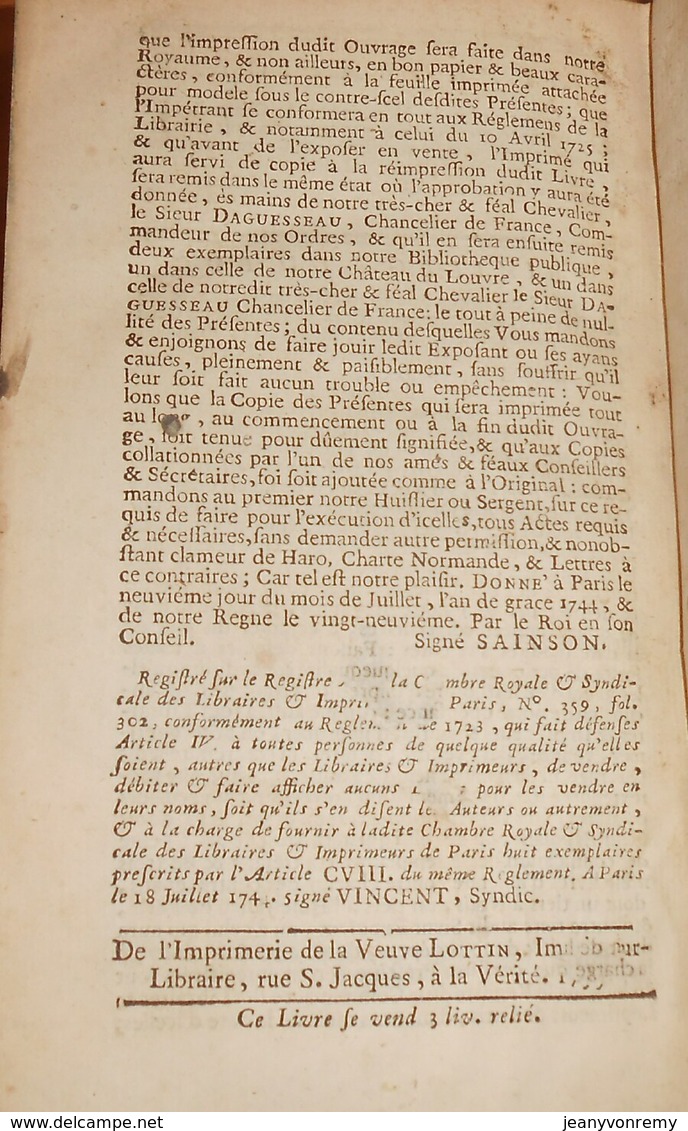 que l'impreſſion dudit Ouvrage ſera faite dans notre
Royaume, & non ailleurs, en bon papier & beaux cara-
ctères, conformément à la feuille imprimée attachée
pour modele ſous le contre-ſcel deſdites Préſentes; que
l'Impétrant ſe conformera en tout aux Réglemens de la
Librairie, & notamment à celui du 10 Avril 1725;
& qu'avant de l'expoſer en vente, l'Imprimé qui
aura ſervi de copie à la réimpreſſion dudit Livre,
ſera remis dans le même état où l'approbation y aura été
donnée, ès mains de notre très-cher & féal Chevalier,
le Sieur DAGUESSEAU, Chancelier de France, Com-
mandeur de nos Ordres, & qu'il en ſera enſuite remis
deux exemplaires dans notre Bibliotheque publique,
un dans celle de notre Château du Louvre, & un dans
celle de notredit très-cher & féal Chevalier le Sieur DA-
GUESSEAU Chancelier de France: le tout à peine de nul-
lité des Préſentes; du contenu deſquelles Vous mandons
& enjoignons de faire jouir ledit Expoſant ou ſes ayans
cauſes, pleinement & paiſiblement, ſans ſouffrir qu'il
leur ſoit fait aucun trouble ou empêchement: Vou-
lons que la Copie des Préſentes qui ſera imprimée tout
au long, au commencement ou à la fin dudit Ouvra-
ge, ſoit tenue pour dûement ſignifiée, & qu'aux Copies
collationnées par l'un de nos amés & féaux Conſeillers
& Sécrétaires, foi ſoit ajoutée comme à l'Original: com-
mandons au premier notre Huiſſier ou Sergent, ſur ce re-
quis de faire pour l'exécution d'icelles, tous Actes requis
& néceſſaires, ſans demander autre permiſſion, & nonob-
ſtant clameur de Haro, Charte Normande, & Lettres à
ce contraires; Car tel eſt notre plaiſir. DONNE' à Paris le
neuviéme jour du mois de Juillet, l'an de grace 1744, &
de notre Regne le vingt-neuviéme. Par le Roi en ſon
Conſeil. Signé SAINSON.
Regiſtré ſur le Regiſtre la C mbre Royale & Syndi-
cale des Libraires & Impri Paris, N°. 359, fol.
302, conformément au Reglem de 1723, qui fait défenſes
Article IV. à toutes perſonnes de quelque qualité qu'elles
ſoient, autres que les Libraires & Imprimeurs, de vendre,
débiter & faire afficher aucuns pour les vendre en
leurs noms, ſoit qu'ils s'en diſent les Auteurs ou autrement,
& à la charge de fournir à ladite Chambre Royale & Syndi-
cale des Libraires & Imprimeurs de Paris huit exemplaires
preſcrits par l'Article CVIII. du même Reglement. A Paris
le 18 Juillet 174 . signé VINCENT, Syndic.
De l'Imprimerie de la Veuve LOTTIN, Im ur-
Libraire, rue S. Jacques, à la Vérité.
Ce Livre ſe vend 3 liv. relié.
© delcampe.net
jeanyvonremy